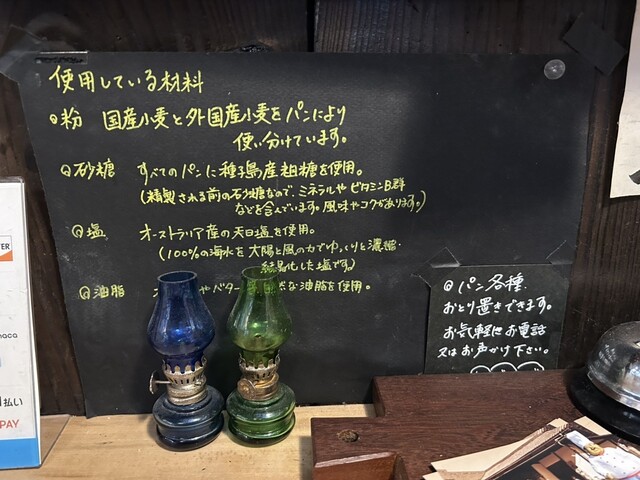 使用している材料
◎粉 国産小麦と外国産小麦をパンにより
使い分けています。
◎砂糖 すべてのパンに種子島産粗糖を使用。
(精製される前の砂糖なので、ミネラルやビタミンB群
などを含んでいます。風味やコクがあります。)
◎塩 オーストラリア産の天日塩を使用。
(100%の海水を太陽と風の力でゆっくりと濃縮・
結晶化した塩です。)
◎油脂 やバター な油脂を使用。
◎パン各種
おとり置きできます。
お気軽にお電話
又はお声かけ下さい。
払い
PAY